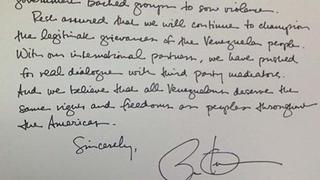 government backed groups to sow violence.
Rest assured that we will continue to champion
the legitimate grievances of the Venezuelan people.
With our international partners, we have pushed
for real dialogue with third party mediators.
And we believe that all Venezuelans deserve the
same rights and freedoms as peoples throughout
the Americas.
Sincerely,